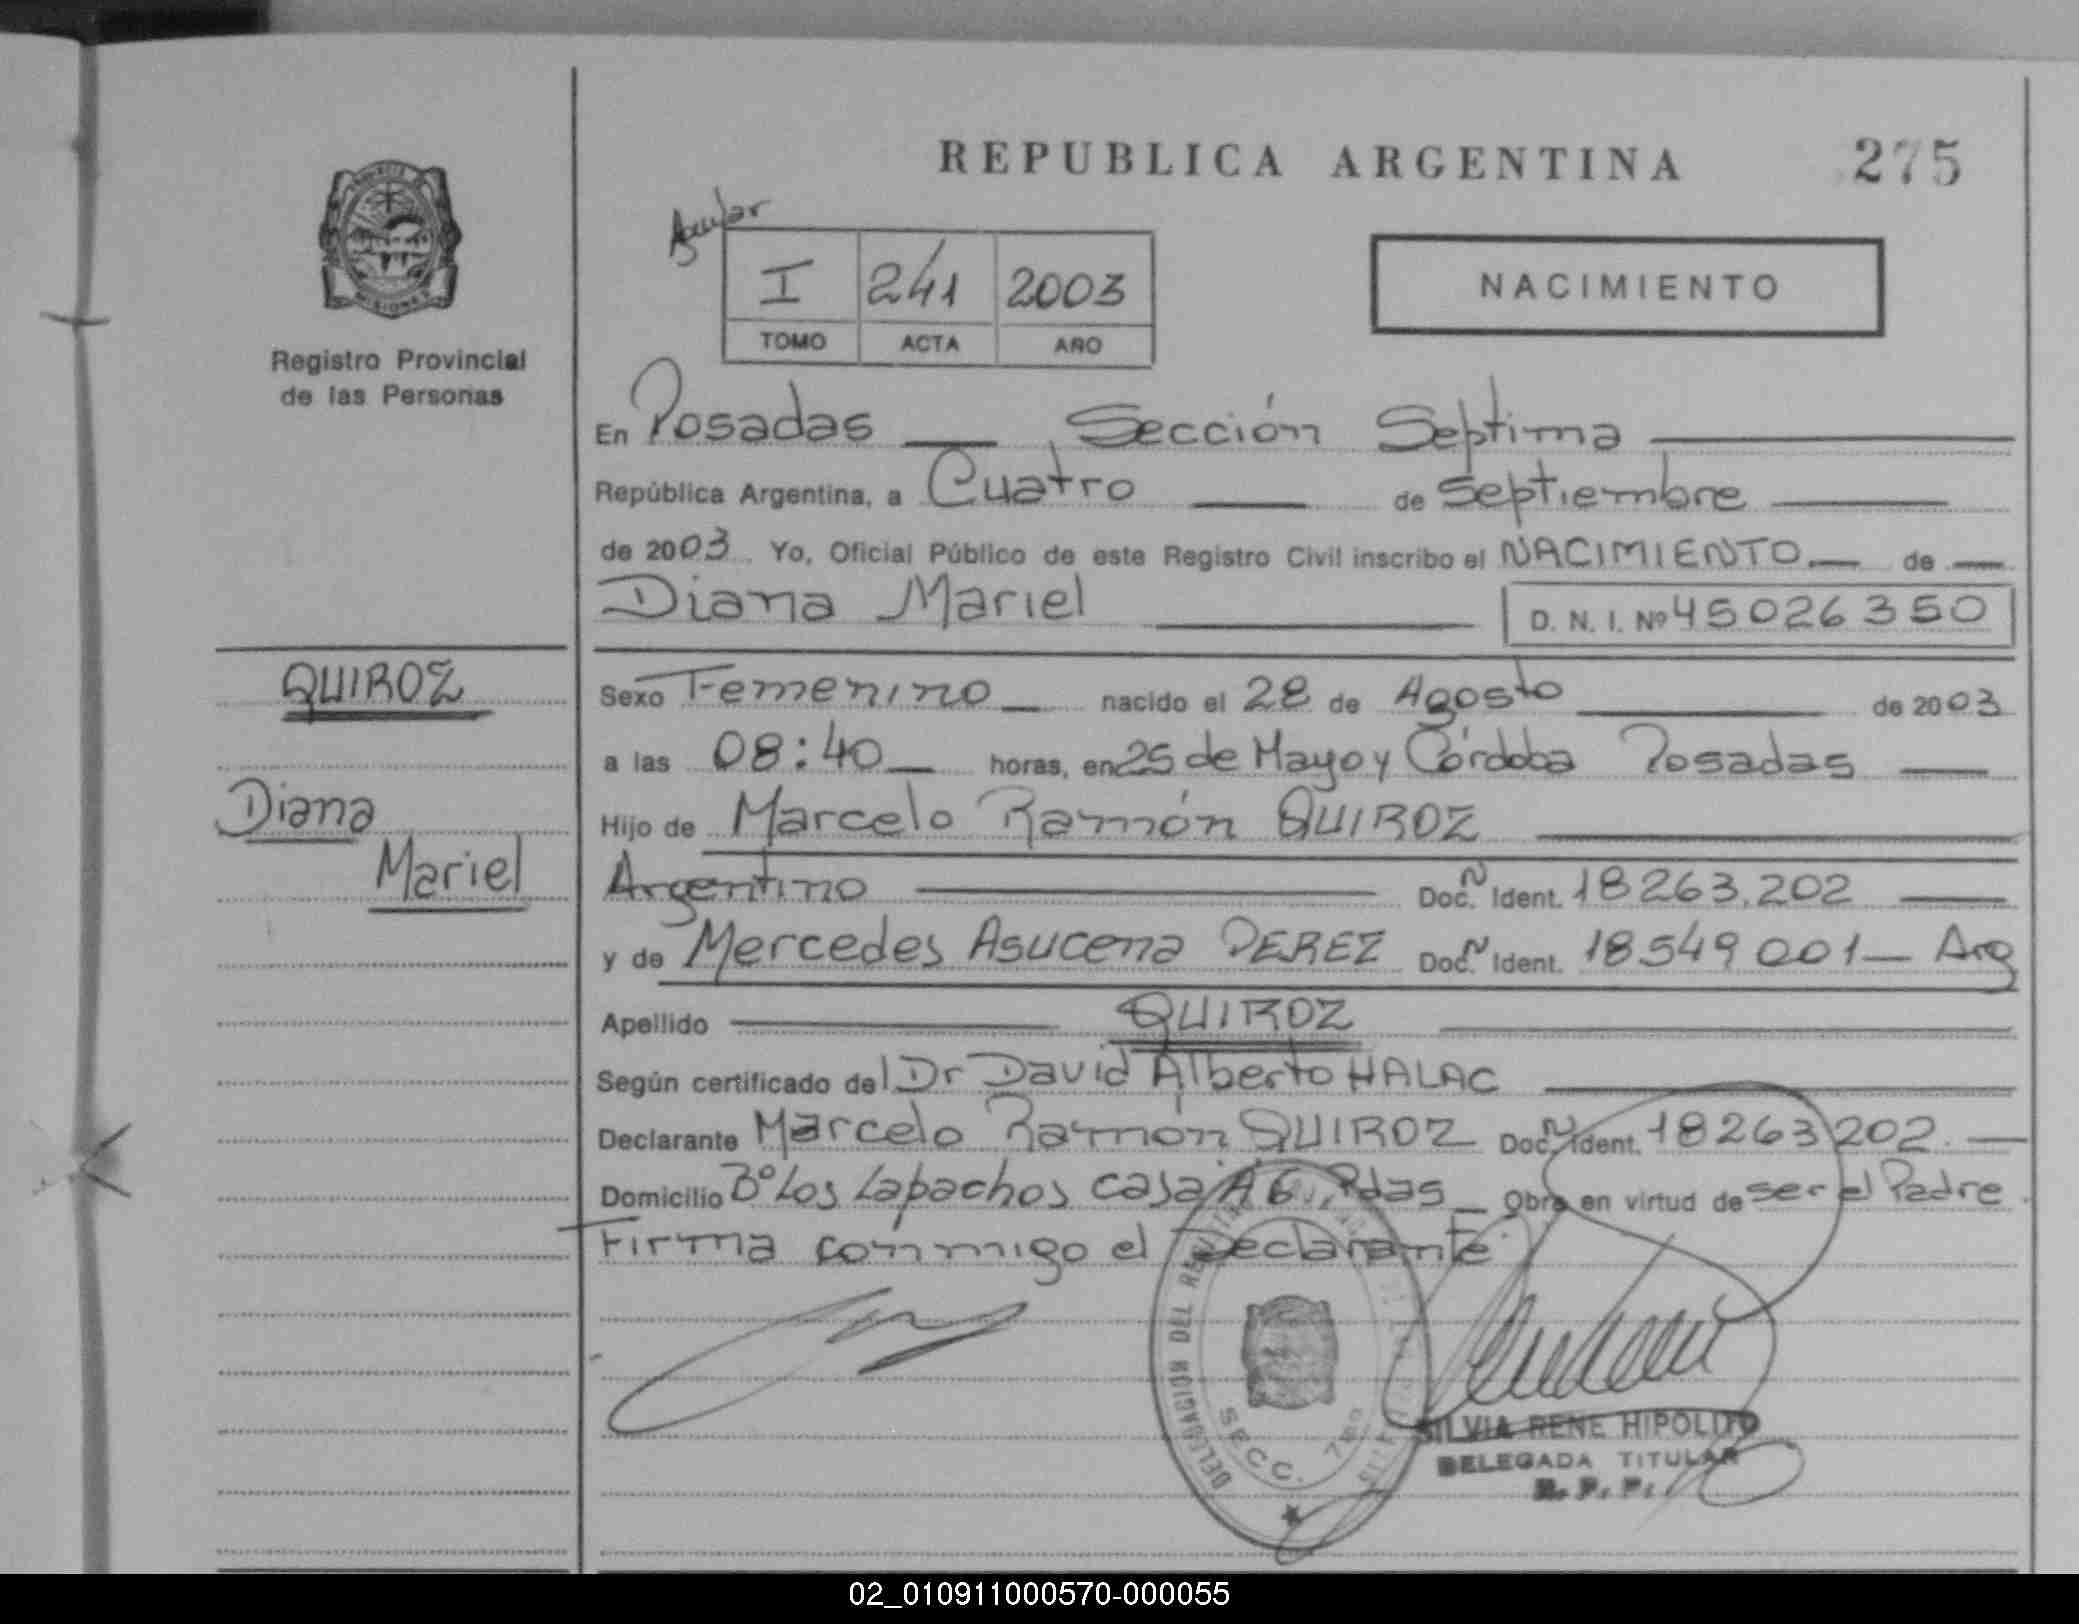 REPUBLICA ARGENTINA 275
Aguilar
I 241 2003
TOMO ACTA AÑO
NACIMIENTO
MISIONES
Registro Provincial
de las Personas
En Posadas , Sección Septima
República Argentina, a Cuatro de Septiembre
de 2003 Yo, Oficial Público de este Registro Civil inscribo el NACIMIENTO de
Diana Mariel D. N. I. Nº 45026350
QUIROZ
Diana
Mariel
Sexo Femenino nacido el 28 de Agosto de 2003
a las 08:40 horas, en 25 de Mayo y Córdoba Posadas
Hijo de Marcelo Ramón QUIROZ
Argentino Doc. N Ident. 18263.202
y de Mercedes Asucena PEREZ Doc. N Ident. 18549001 Arg
Apellido QUIROZ
Según certificado del Dr David Alberto HALAC
Declarante Marcelo Ramón QUIROZ Doc. N Ident. 18263202
Domicilio Bº Los Lapachos casa A 6 Pdas Obra en virtud de ser el Padre
Firma conmigo el Declarante
DELEGACION DEL REGISTRO
SECC. 7ma
SILVIA RENE HIPOLITO
DELEGADA TITULAR
R. P. P.
02_010911000570-000055